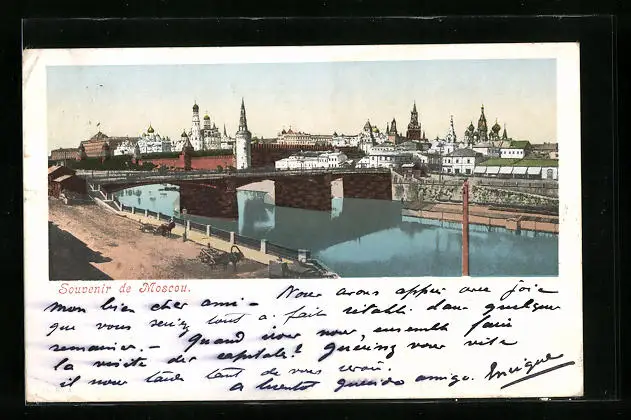 Souvenir de Moscou.
mon bien cher ami - Nous avons appris avec joie
que vous seriez tout à fait rétabli dans quelques
semaines. - Quand irons nous, ensemble faire
la visite des capitales? Guérissez vous vite
il nous tarde tant de vous voir.
a bientot querido amigo. Enrique